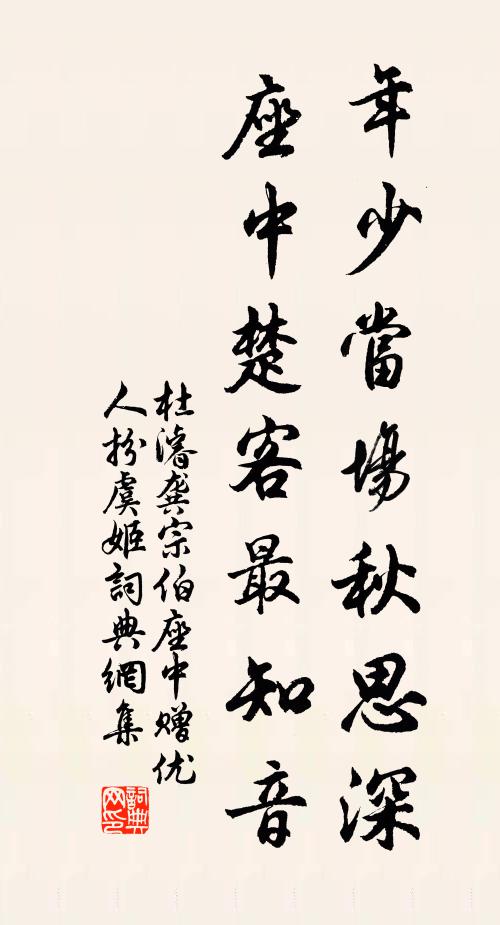 年少當場秋思深
座中楚客最知音
杜濬龚宗伯座中赠优
人扮虞姬詞典網集
詞典
网印